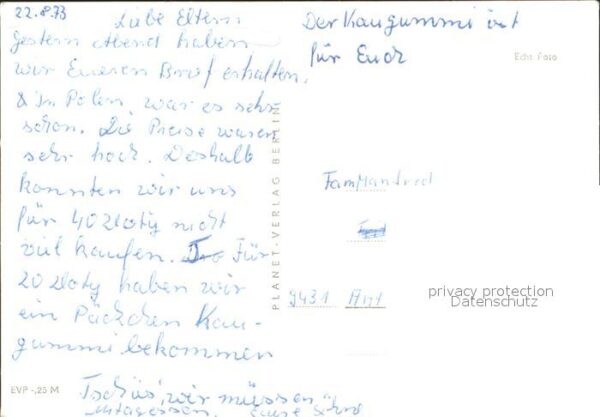 22.8.73 Liebe Eltern
gestern Abend haben
wir Eueren Brief erhalten.
In Polen, war es sehr
schön. Die Preise waren
sehr hoch. Deshalb
konnten wir uns
für 40 Zloty nicht
viel kaufen. Für
20 Zloty haben wir
ein Päckchen Kau-
gummi bekommen
Tschüs, wir müssen
Mitagessen. Eure
EVP -,25 M
PLANET-VERLAG BERLIN
Der Kaugummi ist
für Euch
Echt Foto
Fam Manfred
9431
privacy protection
Datenschutz